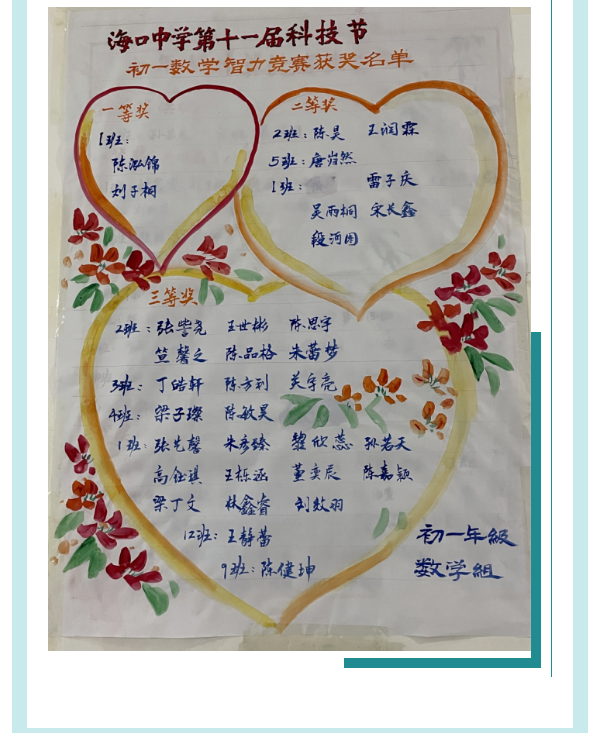 海口中学第十一届科技节
初一数学智力竞赛获奖名单
一等奖
1班:
陈泓锦
刘子桐
二等奖
2班:陈昊 王润霖
5班:唐 然
1班: 雷子庆
吴雨桐 宋长鑫
段河图
三等奖
2班:张 尧 王世彬 陈思宇
笪馨之 陈品格 朱蕾梦
3班:丁皓轩 陈方利 关宇亮
4班:梁子璨 陈敏昊
1班:张艺馨 朱彦臻 黎欣蕊 孙若天
高钰淇 王栎涵 董奕辰 陈嘉颖
梁丁文 林鑫睿 刘数羽
12班:王静蕾
9班:陈健坤
初一年級
数学組